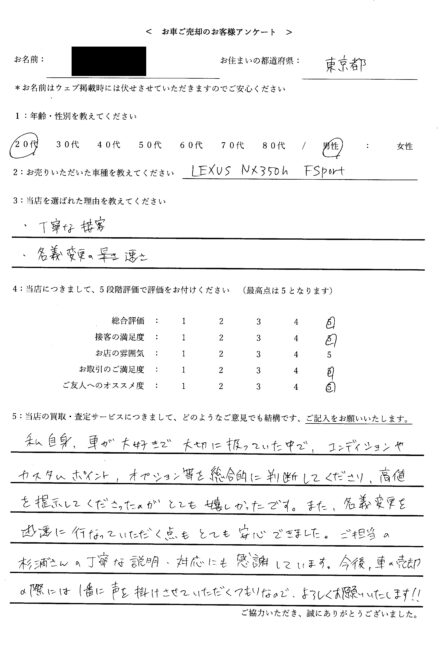 ＜　お車ご売却のお客様アンケート　＞
お名前：　お住まいの都道府県：　東京都
＊お名前はウェブ掲載時には伏せさせていただきますのでご安心ください
1：年齢・性別を教えてください
20代　30代　40代　50代　60代　70代　80代　/　男性　：　女性
2：お売りいただいた車種を教えてください　LEXUS NX350h FSport
3：当店を選ばれた理由を教えてください
・丁寧な接客
・名義変更の速さ
4：当店につきまして、5段階評価で評価をお付けください　（最高点は5となります）
総合評価　：　1　2　3　4　5
接客の満足度　：　1　2　3　4　5
お店の雰囲気　：　1　2　3　4　5
お取引のご満足度　：　1　2　3　4　5
ご友人へのオススメ度　：　1　2　3　4　5
5：当店の買取・査定サービスにつきまして、どのようなご意見でも結構です、ご記入をお願いいたします。
私自身、車が大好きで大切に扱っていた中で、コンディションや
カスタムポイント、オプション等を総合的に判断してくださり、高値
を提示してくださったのがとても嬉しかったです。また、名義変更を
迅速に行なっていただく点もとても安心できました。ご担当の
杉浦さんの丁寧な説明・対応にも感謝しています。今後、車の売却
の際には1番に声を掛けさせていただくつもりなので、よろしくお願いいたします!!
ご協力いただき、誠にありがとうございました。